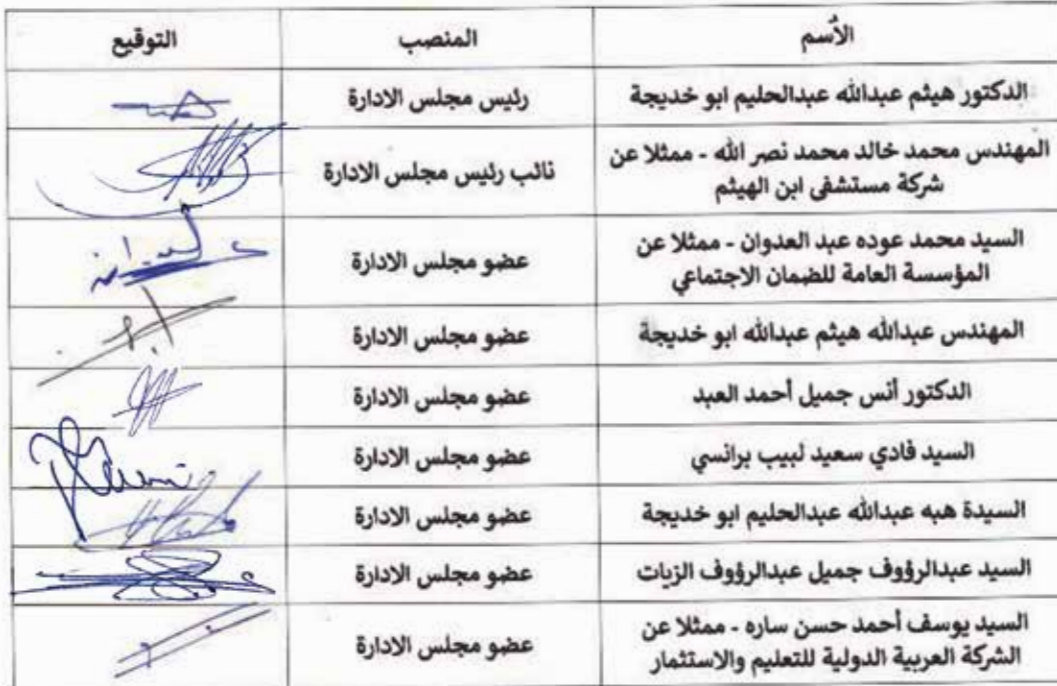 الأسم المنصب التوقيع
الدكتور هيثم عبدالله عبدالحليم ابو خديجة رئيس مجلس الادارة
المهندس محمد خالد محمد نصر الله - ممثلا عن
شركة مستشفى ابن الهيثم نائب رئيس مجلس الادارة
السيد محمد عوده عبد العدوان - ممثلا عن
المؤسسة العامة للضمان الاجتماعي عضو مجلس الادارة
المهندس عبدالله هيثم عبدالله ابو خديجة عضو مجلس الادارة
الدكتور أنس جميل أحمد العبد عضو مجلس الادارة
السيد فادي سعيد لبيب برانسي عضو مجلس الادارة
السيدة هبه عبدالله عبدالحليم ابو خديجة عضو مجلس الادارة
السيد عبدالرؤوف جميل عبدالرؤوف الزيات عضو مجلس الادارة
السيد يوسف أحمد حسن ساره - ممثلا عن
الشركة العربية الدولية للتعليم والاستثمار عضو مجلس الادارة